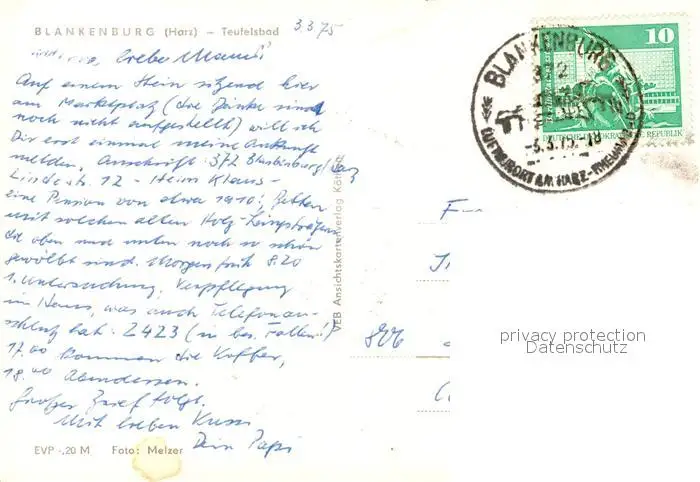 BLANKENBURG (Harz) – Teufelsbad
3375
liebe Mausi!
Auf einem Stein sitzend hier
am Marktplatz (die Bänke sind
noch nicht aufgestellt) will ich
Dir erst einmal meine Ankunft
melden. Anschrift: 372 Blankenburg/Harz
Lindestr. 12 - Heim Klaus -
eine Pension von etwa 1910; Betten
mit solchen alten Holz-
die oben und unten noch so schön
gewölbt sind. Morgen früh 8.20
1. Untersuchung. Verpflegung
im Haus, was auch Telefonan-
schluß hat: 2423 (in bes. Fällen!)
17.00 kommen die Koffer,
18.00 Abendessen.
Großer Brief folgt.
Mit lieben Kuss
Dein Papi
EVP -,20 M Foto: Melzer
VEB Ansichtskartenverlag
10
DEUTSCHE DEMOKRATISCHE REPUBLIK
BLANKENBURG
372
-3.3.75.-18
LUFTKURORT A.M. HARZ-RHEUMABAD
806
privacy protection
Datenschutz